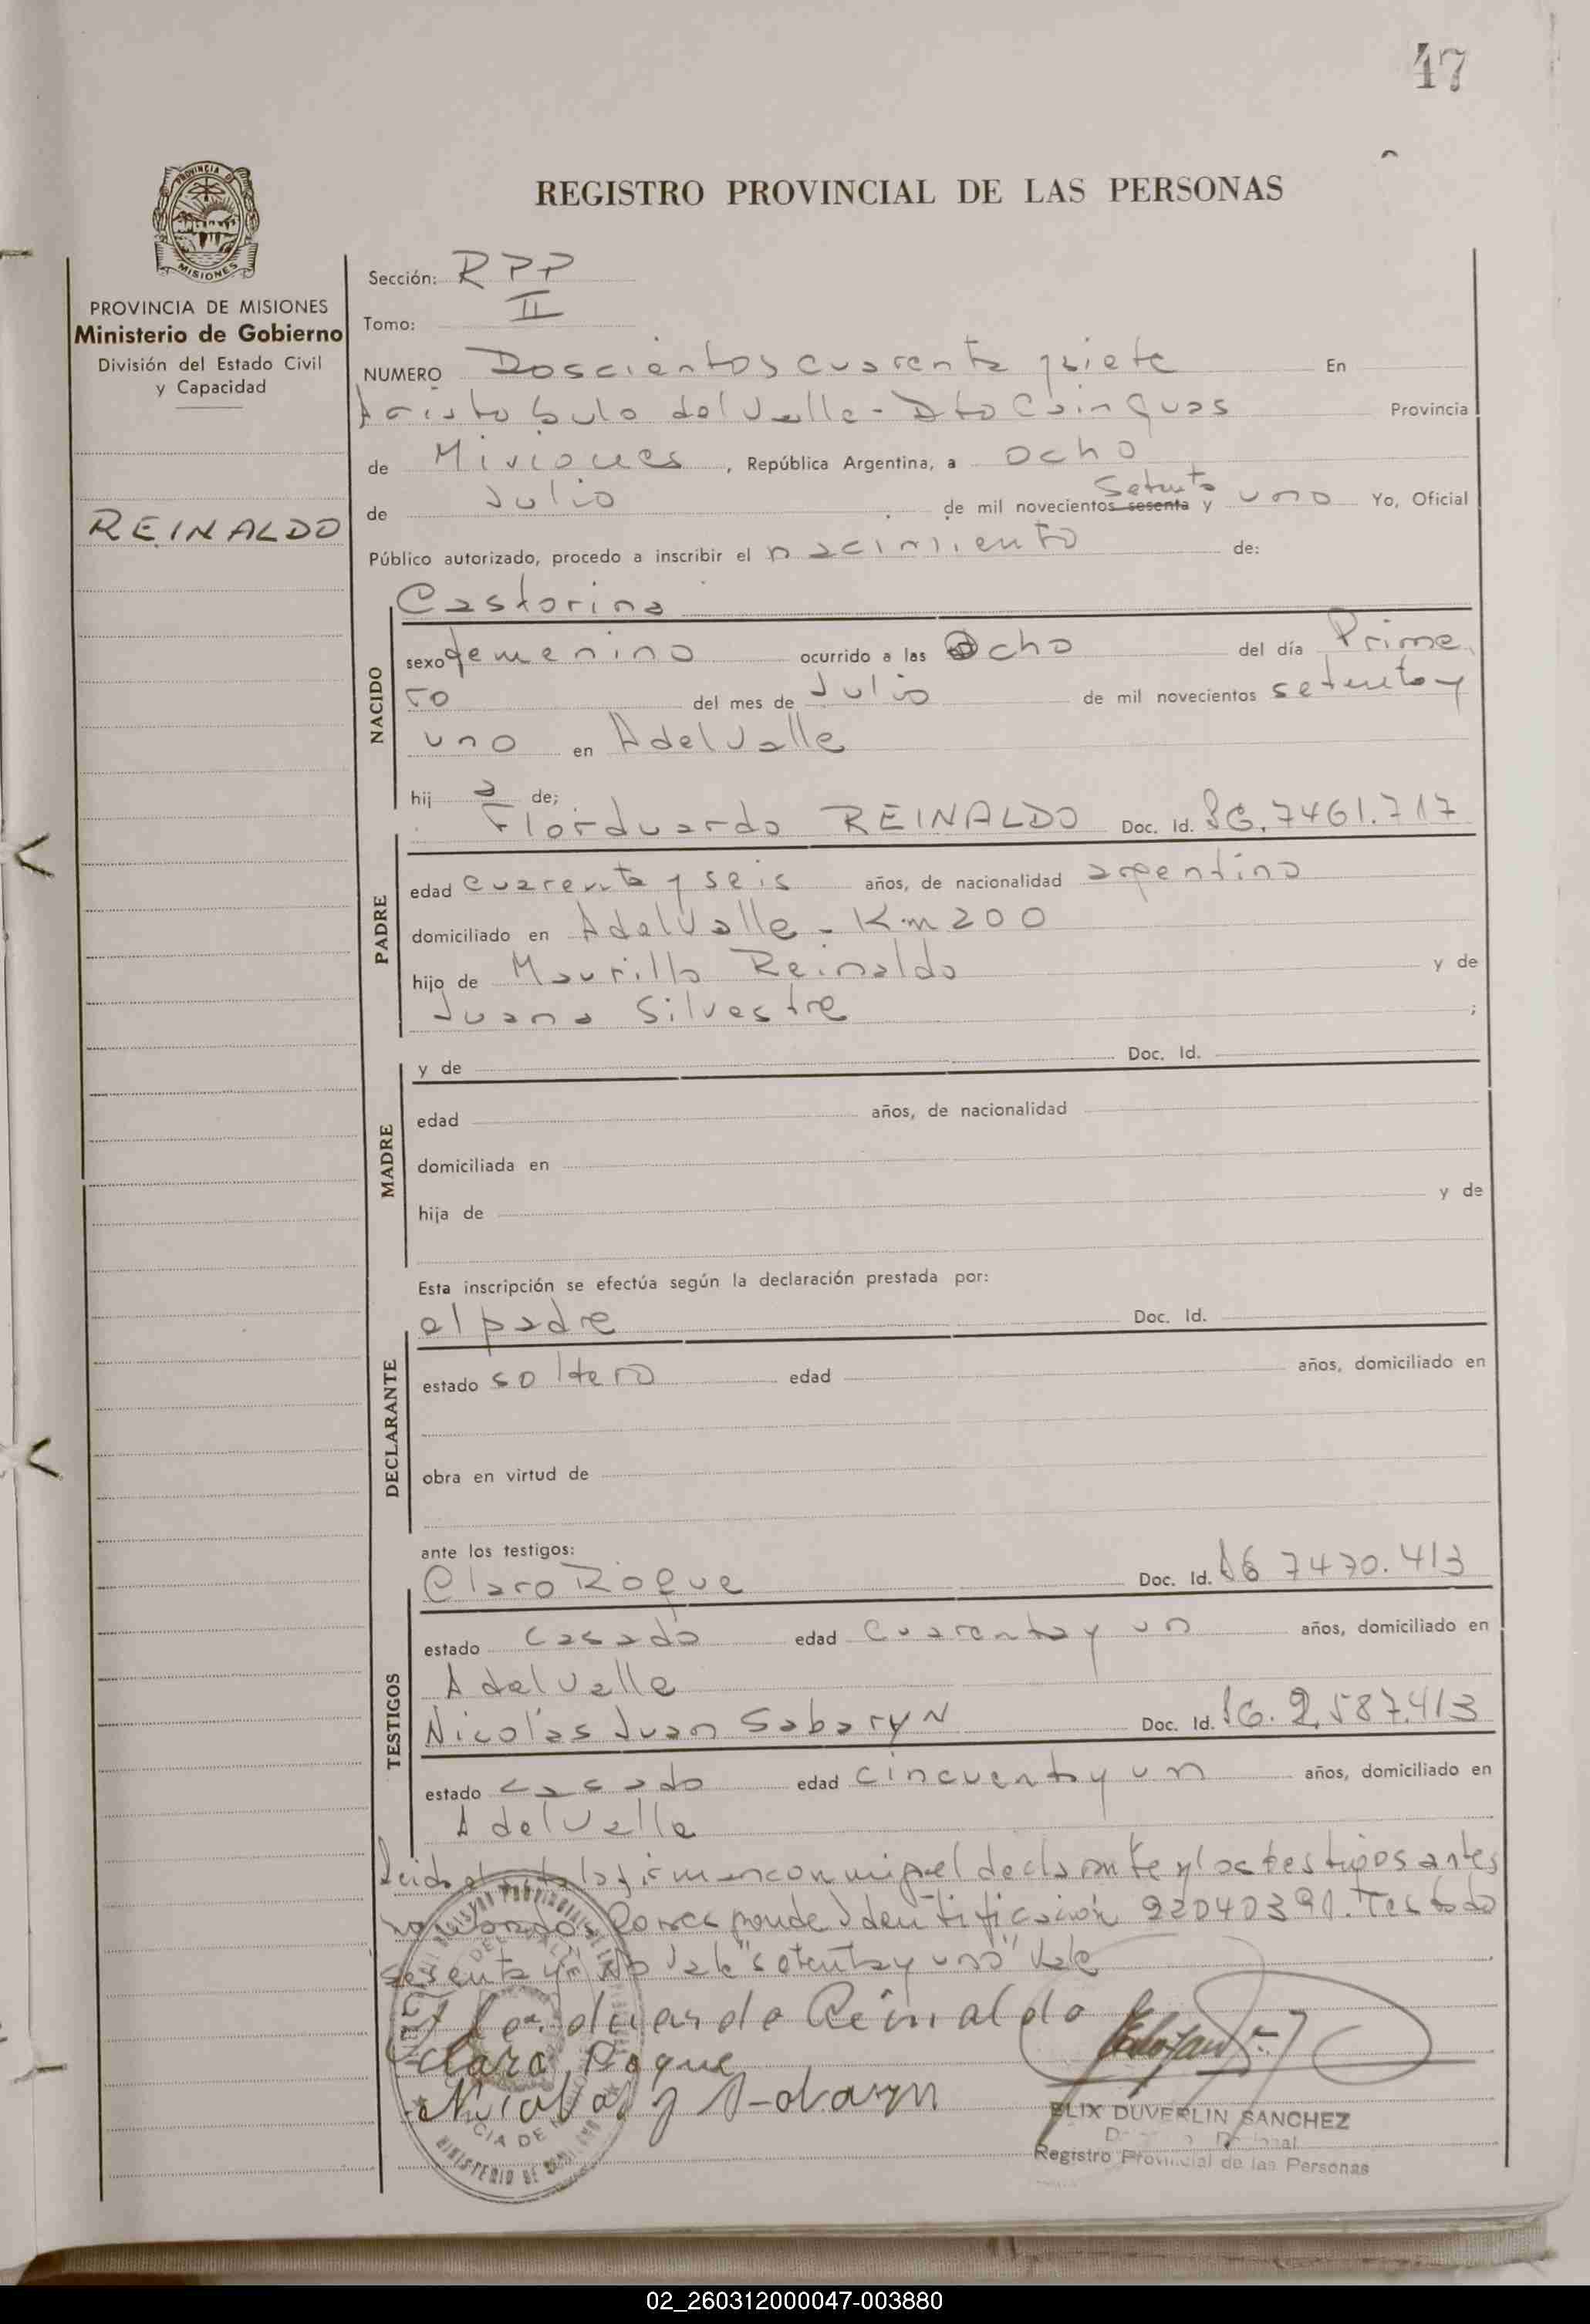 47
REGISTRO PROVINCIAL DE LAS PERSONAS
PROVINCIA DE MISIONES
Ministerio de Gobierno
División del Estado Civil
y Capacidad
REINALDO
Sección: RPP
Tomo: II
NUMERO Doscientos cuarenta y siete En
Aristobulo del Valle - Dto Cainguas Provincia
de Misiones, República Argentina, a ocho
de Julio de mil novecientos sesenta setenta y uno Yo, Oficial
Público autorizado, procedo a inscribir el nacimiento de:
NACIDO
Castorina
sexo femenino ocurrido a las Ocho del día Prime
ro del mes de Julio de mil novecientos setenta y
uno en A del Valle
hij a de;
PADRE
Florduardo REINALDO Doc. Id. 7461.717
edad cuarenta y seis años, de nacionalidad argentino
domiciliado en A del Valle - Km 200
hijo de Maurillo Reinaldo y de
Juana Silvestre ;
MADRE
y de Doc. Id.
edad años, de nacionalidad
domiciliada en
hija de y de
Esta inscripción se efectúa según la declaración prestada por:
DECLARANTE
el padre Doc. Id.
estado soltero edad años, domiciliado en
obra en virtud de
ante los testigos:
TESTIGOS
Claro Roque Doc. Id. 7470.413
estado casado edad cuarenta y un años, domiciliado en
A del Valle
Nicolás Juan Sabaryn Doc. Id. 2.587.413
estado casado edad cincuenta y un años, domiciliado en
A del Valle
Leido el acta la firman conmigo el declarante y los testigos antes
nombrados. Corresponde Identificación 22040390. Testado
sesenta y No Vale "setenta y uno" Vale
Reinaldo
Claro Roque
Nicolas J
ELIX DUVERLIN SANCHEZ
Registro Provincial de las Personas
02_260312000047-003880